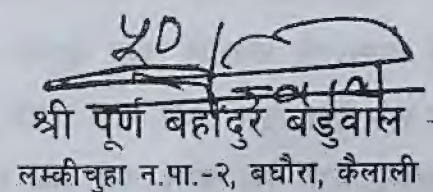 ५०
श्री पूर्ण बहादुर बडुवाल
लम्कीचुहा न.पा.-२, बघौरा, कैलाली